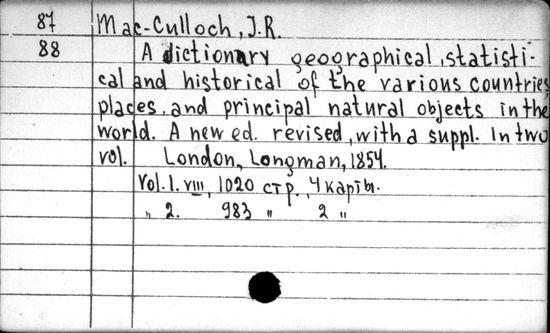 87 Mac-Culloch, J.R.
88 A dictionary geographical, statisti-
cal and historical of the various countries,
places, and principal natural objects in the
world. A new ed. revised, with a suppl. In two
vol. London, Longman, 1854.
Vol. 1. VIII, 1020 стр., 4 карты.
„ 2. 983 „ 2 „